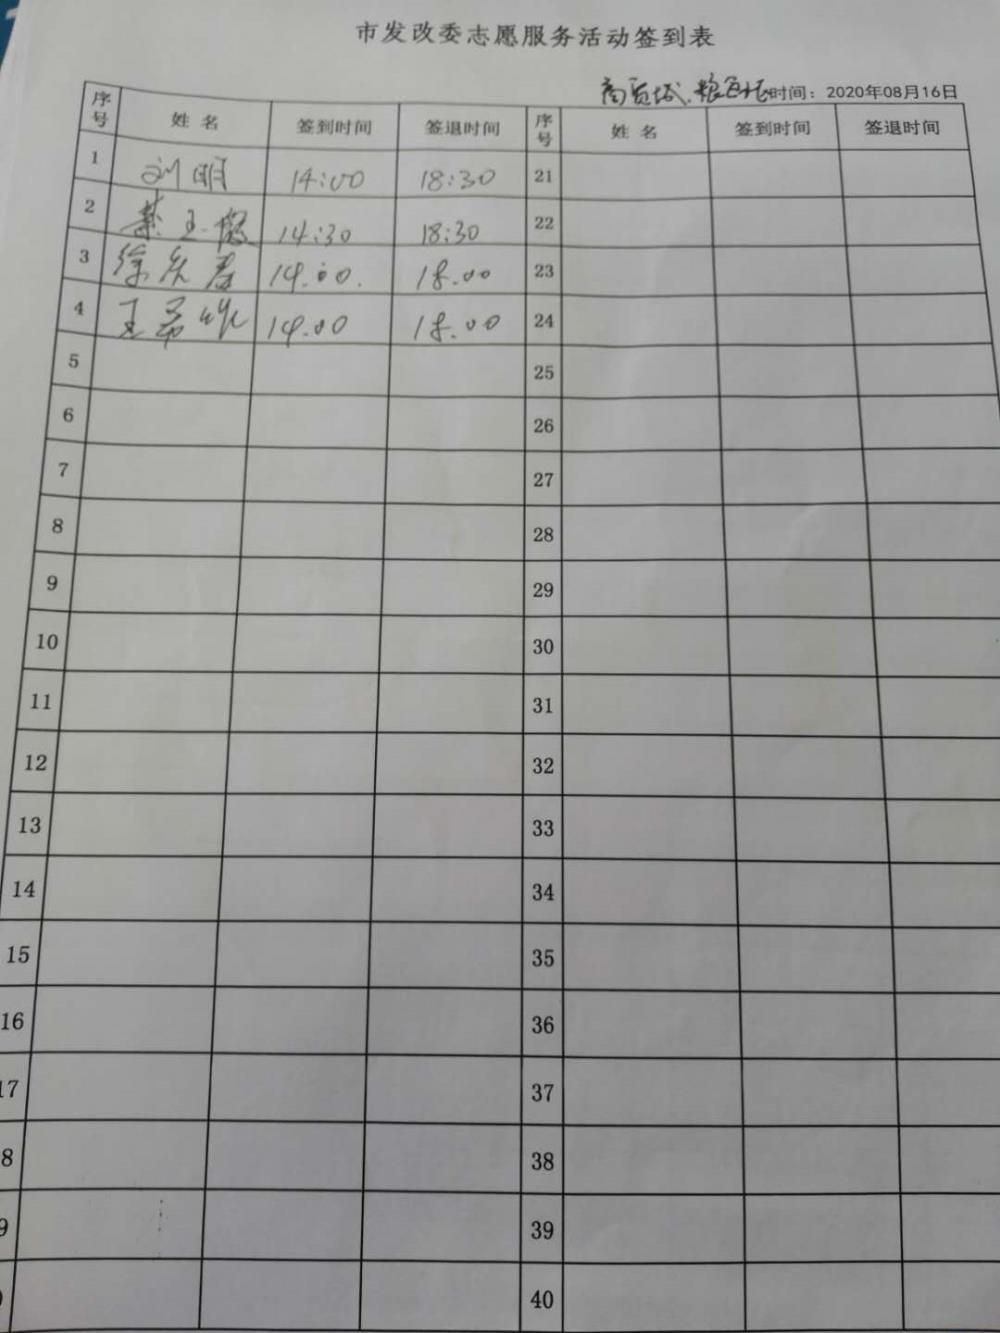 市发改委志愿服务活动签到表
商贸城. 时间：2020年08月16日
序号 姓 名 签到时间 签退时间 序号 姓 名 签到时间 签退时间
1 刘明 14:00 18:30 21
2 14:30 18:30 22
3 徐庆 14.00. 18.00 23
4 王 14.00 18.00 24
5 25
6 26
7 27
8 28
9 29
10 30
11 31
12 32
13 33
14 34
15 35
16 36
17 37
8 38
9 39
40